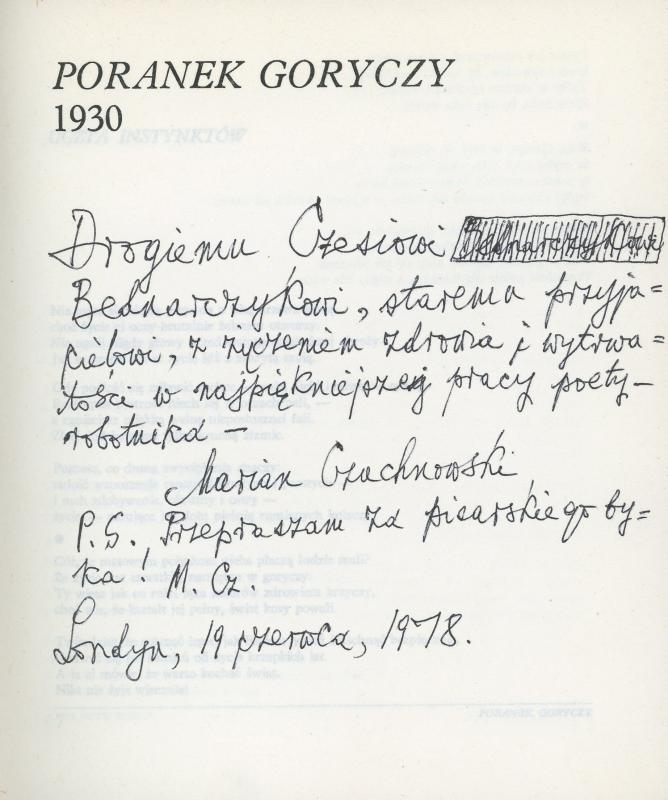 PORANEK GORYCZY
1930
Drogiemu Czesiowi
Bednarczykowi, staremu przyja=
cielowi, z życzeniem zdrowia i wytrwa=
łości w najpiękniejszej pracy poety-
robotnika —
Marian Czuchnowski
P.S. Przepraszam za pisarskiego by=
ka! M. Cz.
Londyn, 19 czerwca, 1978.
PORANEK GORYCZY